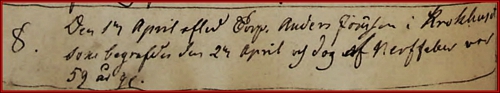 8. Den 17 April afled Torp. Anders Jönsson i Krokhusen
som begrafdes den 24 April och dog af Nerffeber var
59 år gl.